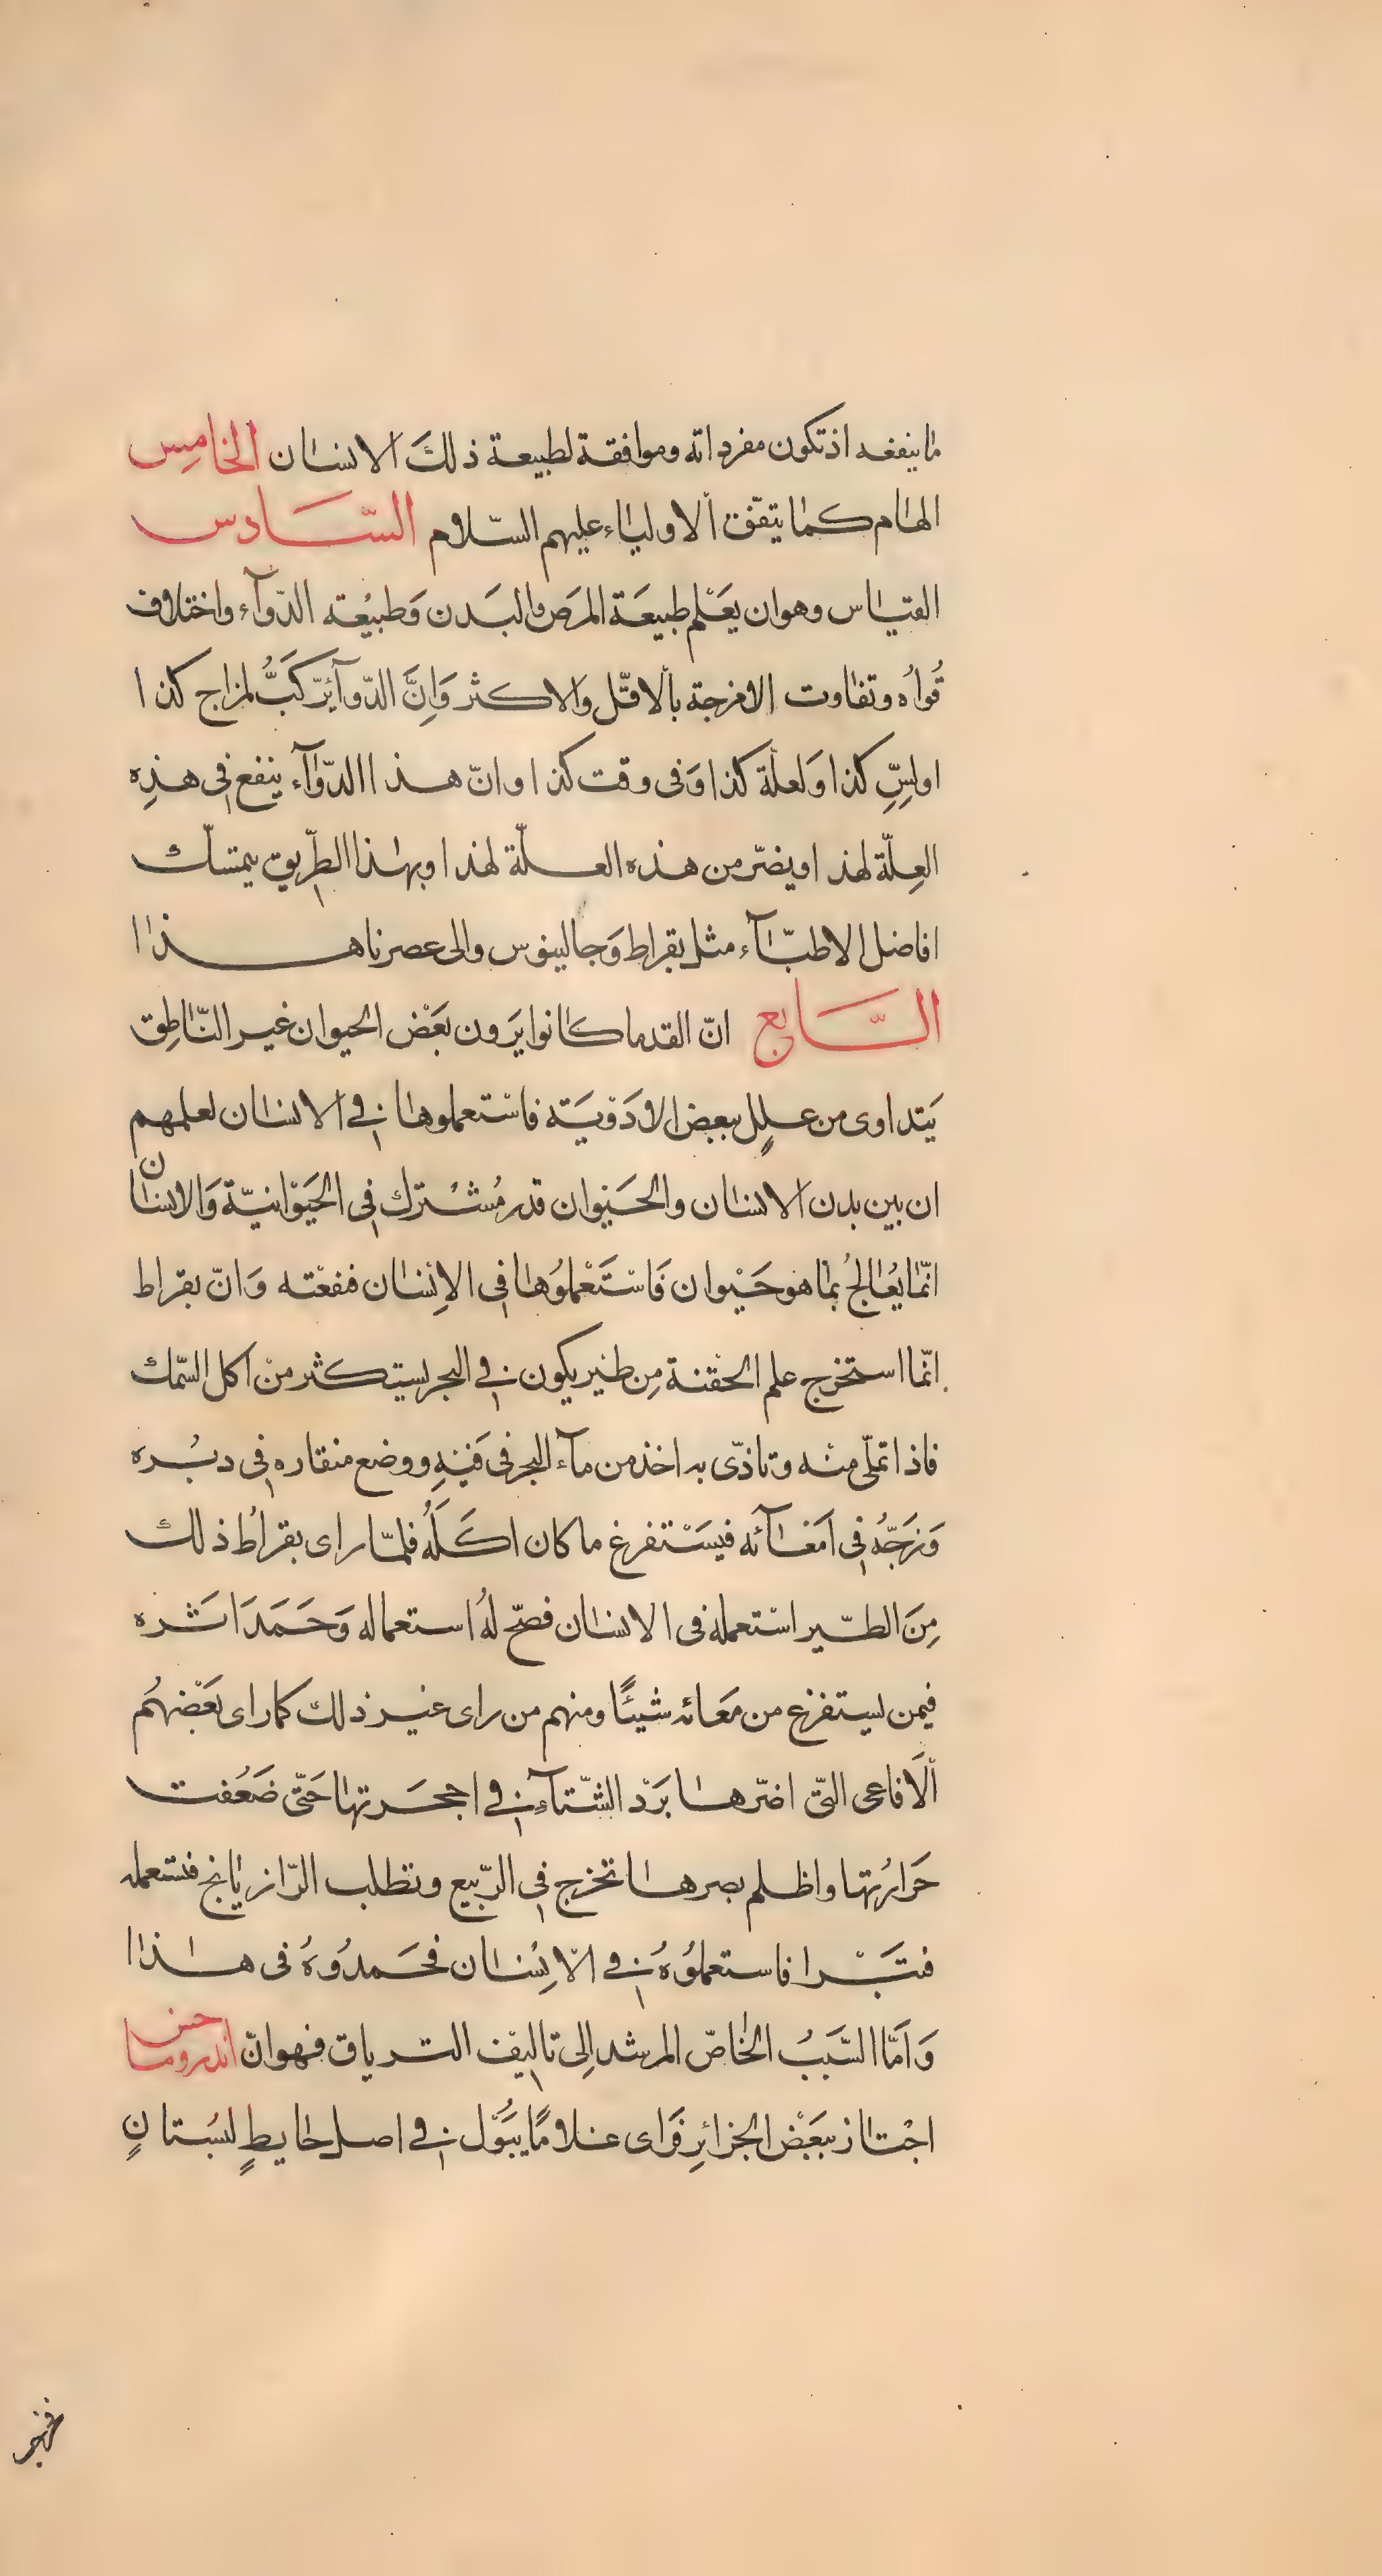 ماينفعه اذتكون مفرداته وموافقة لطبيعة ذلكَ الانسان الخامِس
الهام كما يتفّق ألاولياء عليهم السّلام السّادس
القياس وهوان يعَلم طبيعَة المرض والبَدن وَطبيْعته الدّوآء واختلاف
قُواُه وتفاوت الامزجة بألاقّل والاكثر وَاِنَّ الدّوآئِرّكَبُّ لمزاج كذا
اولسِّ كذا وَلعلّة كذا وَفى وقت كذا وانّ هذا الدّوّآء ينفع فى هذِه
العِلّة لهذا ويضّر من هذه العلّة لهذا وبهٰذا الطِّريق يمتسّك
افاضل الاطبّآء مثل بقراط وَجالينوس والى عصرنا هذا
السَّابع انّ القدما كانوا يَرون بعَض الحيوان غير النّاطِق
يَتداوى من عللٍ ببعض الادَوْيَته فاسْتعملوها فى الانسان لعلمهم
ان بين بدن الانسان والحَيْوان قدر مُشْترك فى الحَيَوْانيّة وَالانسان
انّما يُعٰالجُ بما هو حَيْوان فَاسْتَعْملوُها فى الاِنسان فنفعْته وَانّ بقراط
انّما استخرج علم الحقْنة مِن طيْر يكون فى البحر يستكثر منْ اكل السّمك
فاذا تملّى منه وتاذّى به اخذ من مآء البحر فى فَيْهِ ووضع منقاره فى دبُره
وَزَجّهُ فى اَمْعآئه فيسَتفرغ ما كان اكَلَهُ فلمّا راى بقراطُ ذلك
مِنَ الطّير اسْتعمله فى الانسان فصحّ لهُ استعماله وَحَمَدَ اثَره
فيمن يستفرغ من مَعَائه شيئًا ومنهم من راى غير ذلك كما راى بَعْضهُم
ألَافاعى التّى اضّرها بَرْد الشّتآءِ فى احجَرتها حَتّى ضَعُفت
حَرارُتها واظلم بصرها تخرج فى الرّبيع وتطلب الرّازيانج فتستعمله
فتَبَرا فاستعملوُهُ فى الاِنسان فحَمدُوهُ فى هذا
وَاَمّا السَّببُ الخاصّ المرشد اِلى تاليْف الترياق فهوانّ اندروماخس
اجْتاز ببَعْض الجزائِر فَراى غلامًا يَبُوّل فى اصل حايطٍ لبُستانٍ
فخبر